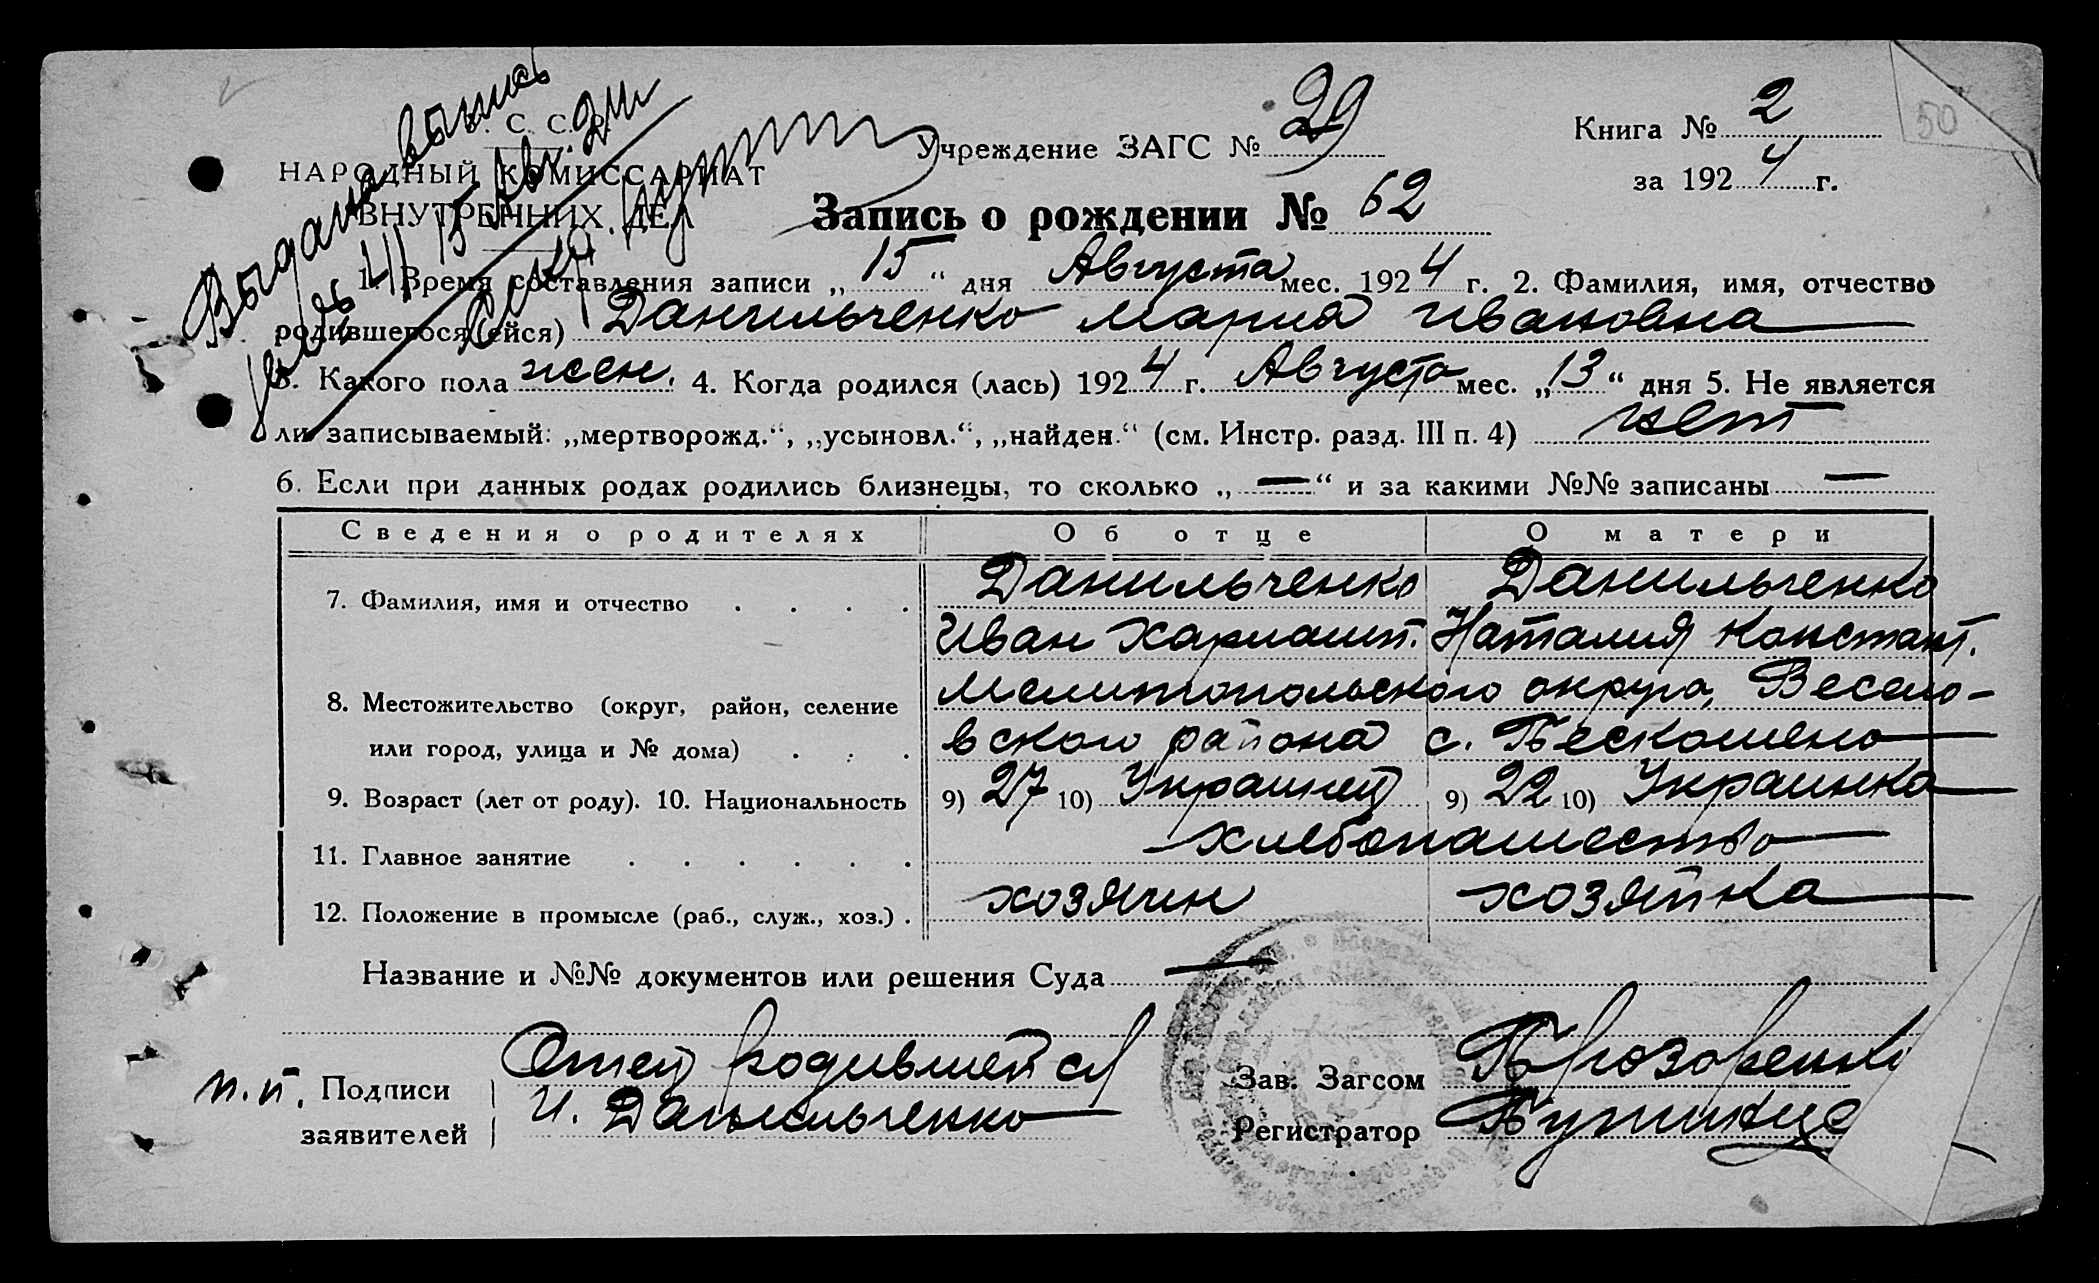 50
С. С. Р.
НАРОДНЫЙ КОМИССАРИАТ
ВНУТРЕННИХ ДЕЛ
Выдана выпись
Учреждение ЗАГС № 29
Книга № 2
за 1924 г.
Запись о рождении № 62
1. Время составления записи „ 15 “ дня Августа мес. 1924 г. 2. Фамилия, имя, отчество
родившегося (ейся) Данильченко Мария Ивановна
3. Какого пола жен. 4. Когда родился (лась) 1924 г. Августа мес. „ 13 “ дня 5. Не является
ли записываемый: „мертворожд.“, „усыновл.“, „найден.“ (см. Инстр. разд. III п. 4) нет
6. Если при данных родах родились близнецы, то сколько „ — “ и за какими №№ записаны —
Сведения о родителях Об отце О матери
7. Фамилия, имя и отчество . . . . Данильченко Данильченко
Иван Харлампт. Наталия Констант.
8. Местожительство (округ, район, селение Мелитопольского округа, Весело-
или город, улица и № дома) . . . вского района с.
9. Возраст (лет от роду). 10. Национальность 9) 27 10) Украинец 9) 22 10) Украинка
11. Главное занятие . . . . . . хлебопашество
12. Положение в промысле (раб., служ., хоз.) . хозяин хозяйка
Название и №№ документов или решения Суда —
п.п. Подписи заявителей
Отец родившейся
И. Данильченко
Зав. Загсом
Регистратор